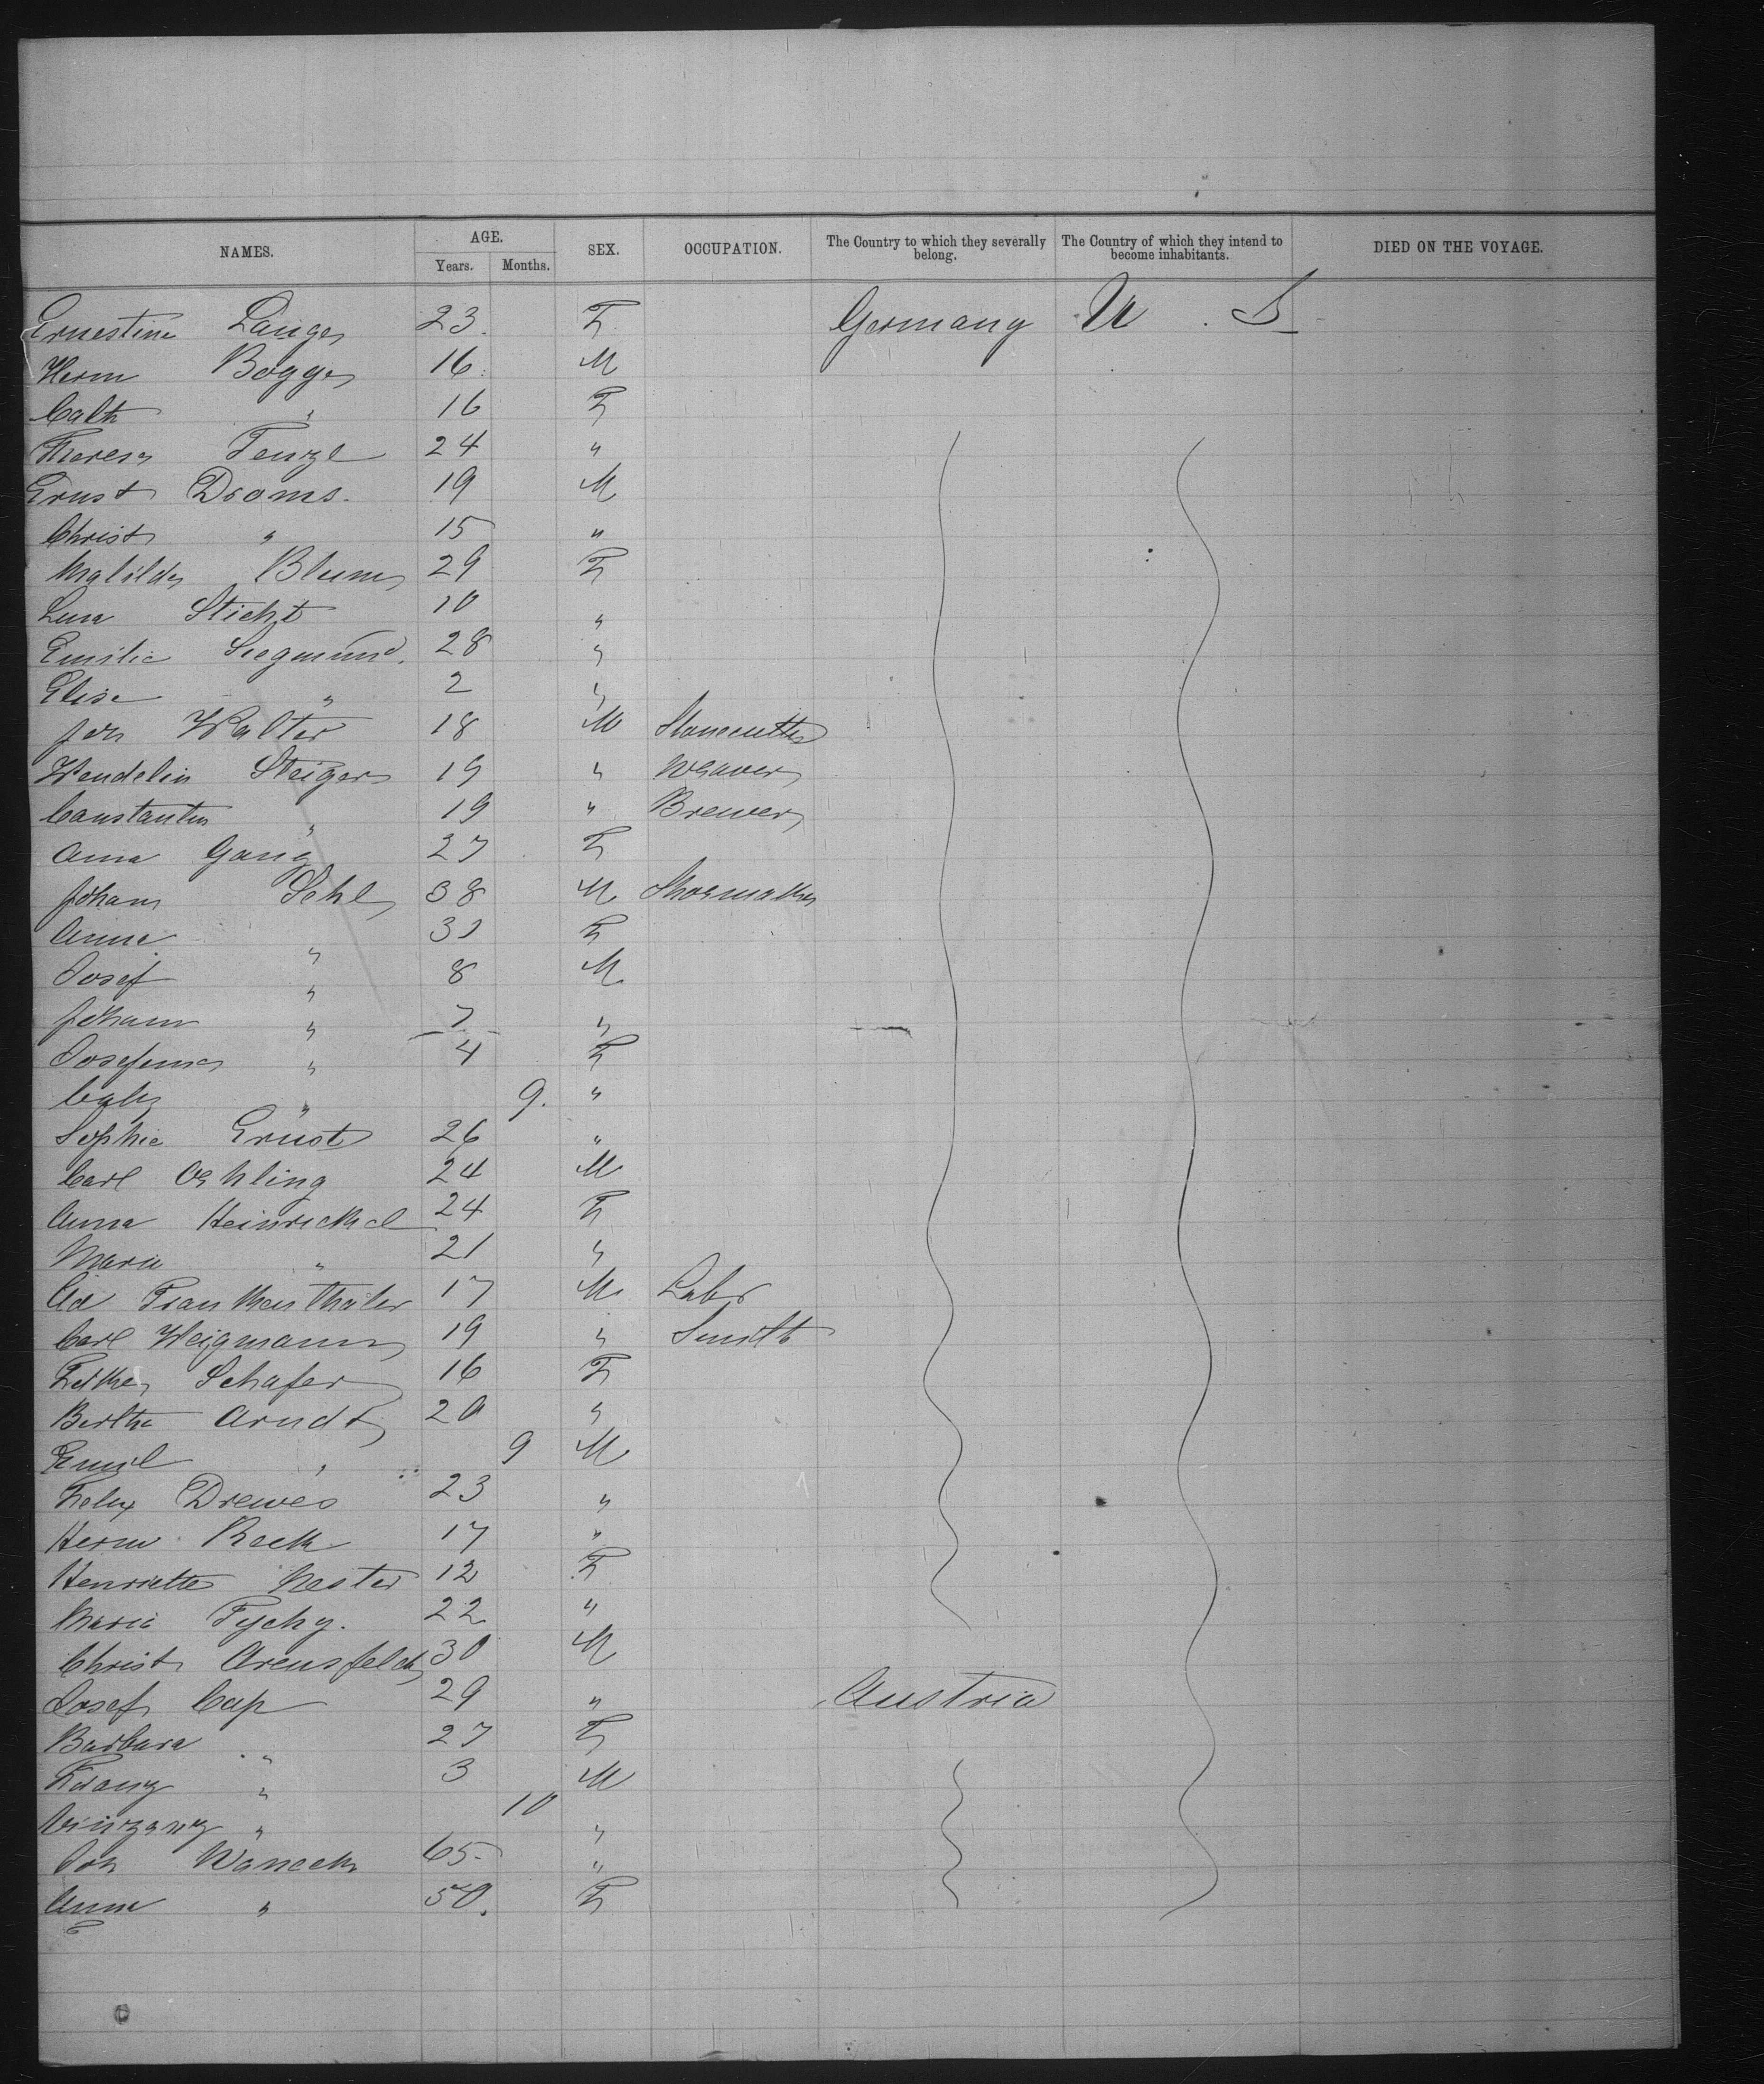 NAMES. AGE. SEX. OCCUPATION. The Country to which they severally belong. The Country of which they intend to become inhabitants. DIED ON THE VOYAGE.
Years. Months.
Ernestine Lange 23. F Germany U. S
Herm Bogge 16 M
Cath " 16 F
Theresa Tenzl 24 "
Ernst Droms. 19 M
Christ " 15 "
Mathilde Blum 29 F
Lena Sticht 10 "
Emilie Siegmund. 28 "
Elise " 2 "
Joh Walter 18 M Stonecutter
Wendelin Steiger 19 " Weaver
Constantin " 19 " Brewer
Anna Gang 27 F
Johann Sehl 38 M Shoemaker
Anna " 31 F
Josef " 8 M
Johann " 7 "
Josefina " 4 F
" 9. "
Sophie Ernst 26 "
Carl Oehling 24 M
Anna Heinrichel 24 F
Maria " 21 "
Ad Frankenthaler 17 M Labr
Carl Weigmann 19 " Smith
Schafer 16 F
Bertha Arndt 20 "
Emil " 9 M
Felix Drewes 23 "
Herm Beck 17 "
Henriette Nester 12 F
Maria Tychy. 22 "
Christ Arensfeld 30 M
Josef Cap 29 " Austria
Barbara " 27 F
Franz " 3 M
Vinzenz " 10 "
Joh Waneck 65 "
Anna " 50. F